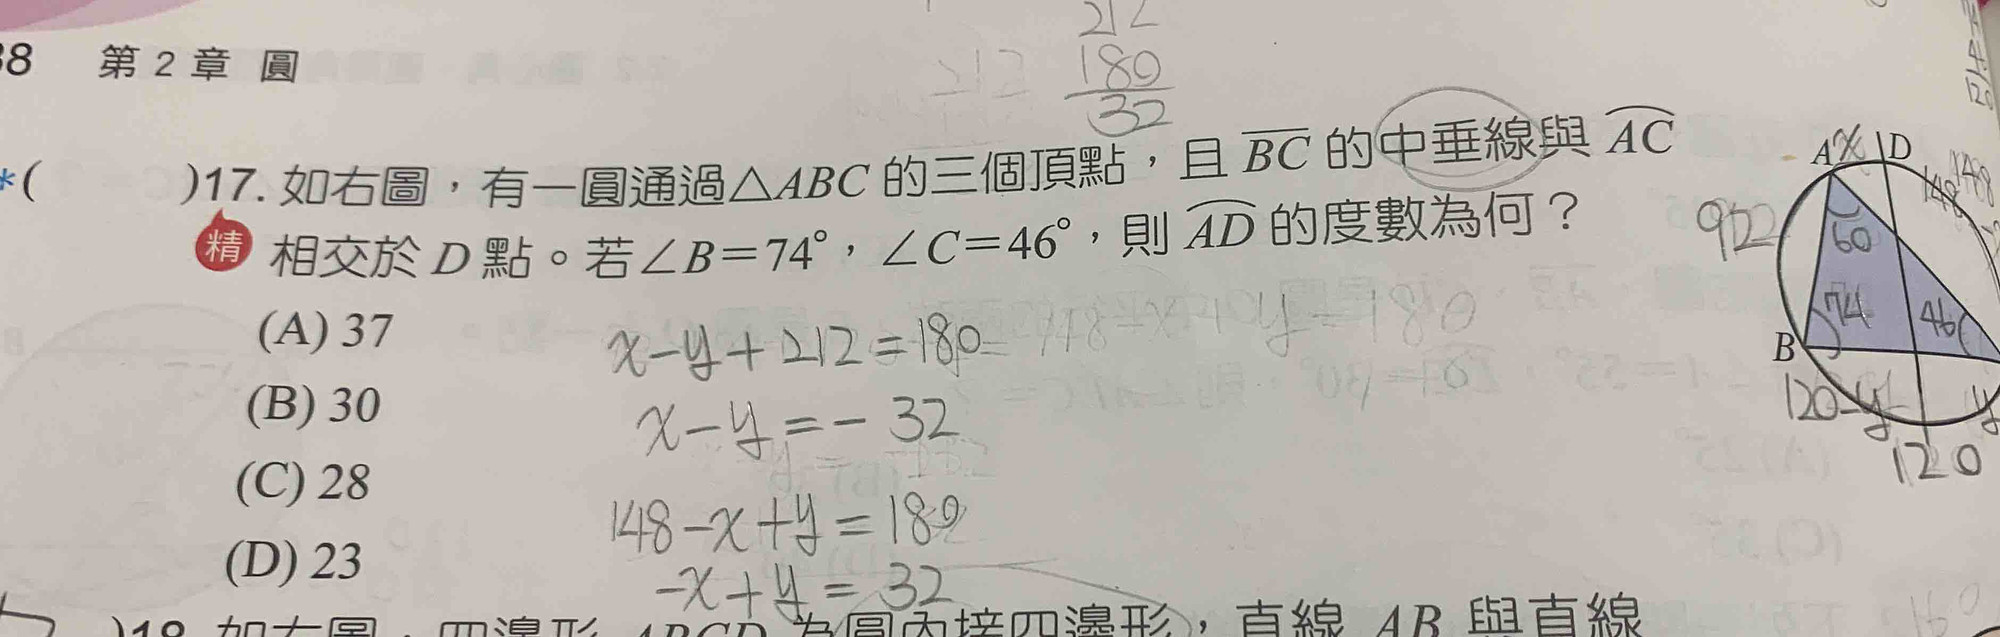 38 第 2 章 圓
212
180
32
*( )17. 如右圖，有一圓通過△ABC 的三個頂點，且 BC 的中垂線與 AC
精 相交於 D 點。若∠B=74°，∠C=46°，則 AD 的度數為何？
(A) 37
(B) 30
(C) 28
(D) 23
x-y+212=180
x-y=-32
148-x+y=180
-x+y=32
A x D
148
148
92
60
74
46
B
120-y
y
120
)18. 如右圖，四邊形 ABCD 為圓內接四邊形，直線 AB 與直線